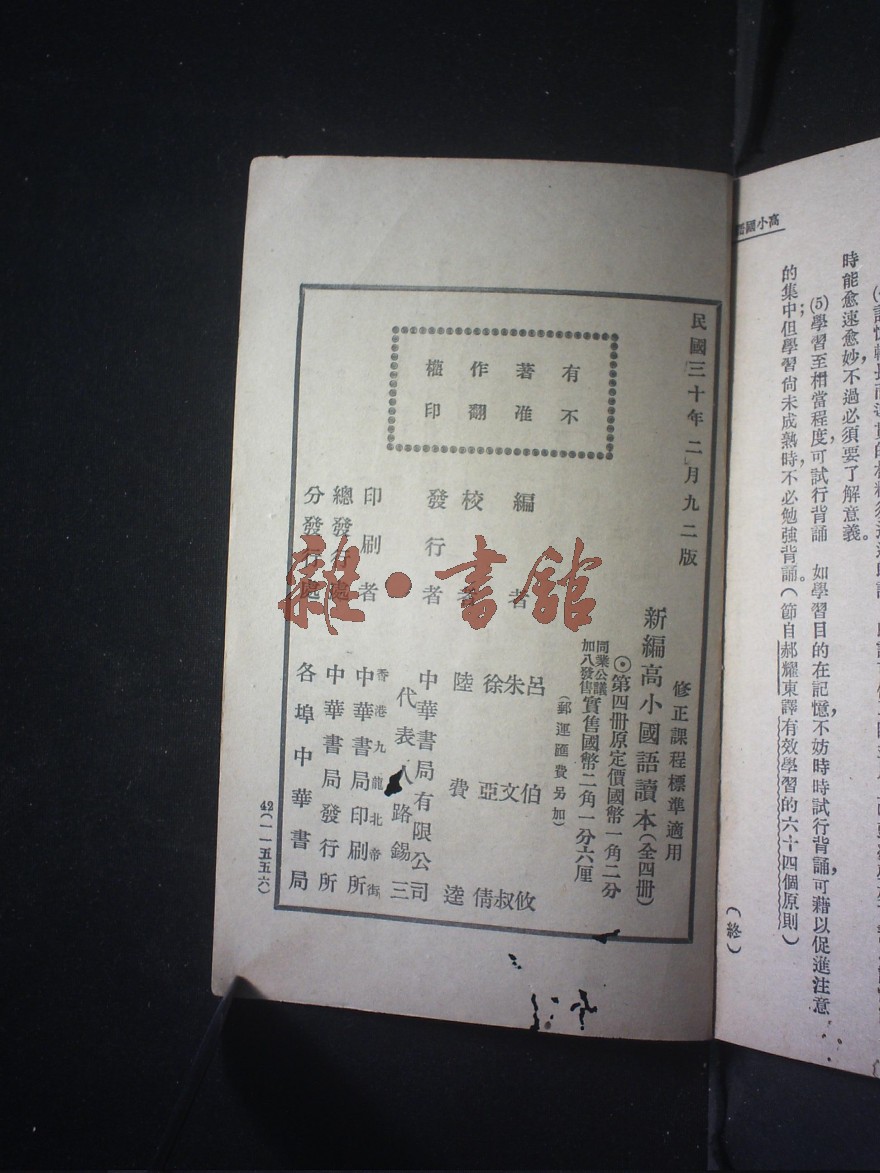 高小國語
時能愈速愈妙，不過必須要了解意義。
(5)學習至相當程度，可試行背誦　如學習目的在記憶，不妨時時試行背誦，可藉以促進注意
的集中；但學習尙未成熟時，不必勉強背誦。(節自郝耀東譯有效學習的六十四個原則)
(終)
民國三十年二月九二版
有著作權
不准翻印
修正課程標準適用
新編高小國語讀本(全四册)
⊙第四册原定價國幣一角二分
同業公議
加八發售
實售國幣二角一分六厘
(郵運匯費另加)
編者
呂伯攸
朱文叔
徐亞倩
校者
陸費逵
發行者
中華書局有限公司
代表人路錫三
印刷者
香港九龍北帝街
中華書局印刷所
總發行處
中華書局發行所
分發行處
各埠中華書局
42(一一五五六)
雜·書館